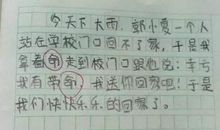 今天下大雨,郭小夏一个人
站在学校门口回不了家,于是我
拿着命走到校门口跟他说:幸亏
我有带命,我送你回家吧!于是
我们快快乐乐的回家了。